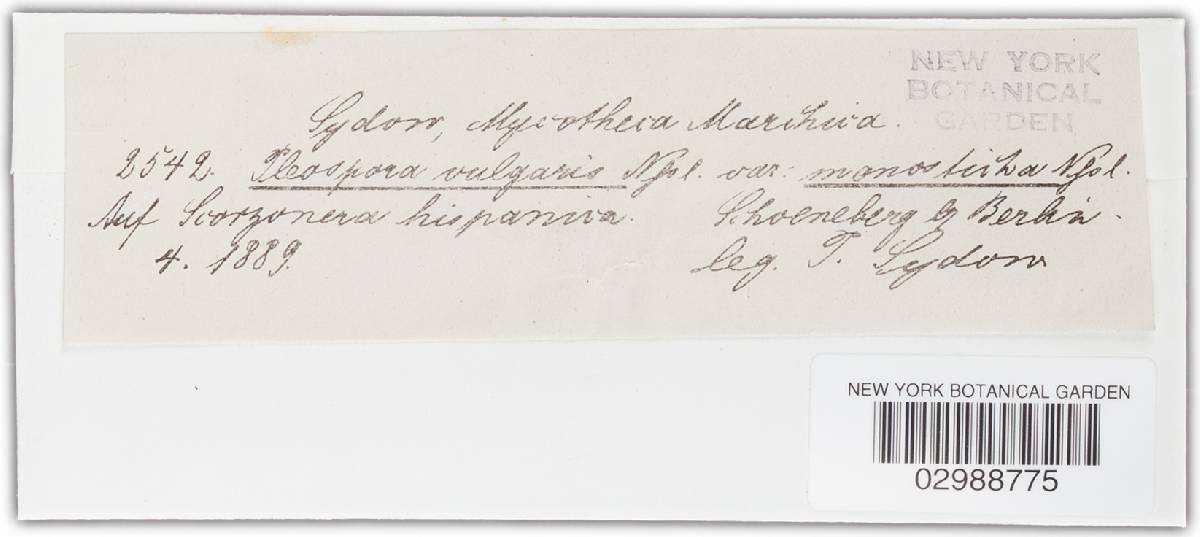 NEW YORK
BOTANICAL
GARDEN
Sydow, Mycotheca Marchica.
2542. Pleospora vulgaris Nssl. var: monosticha Nssl.
Auf Scorzonera hispanica. Schoeneberg b/ Berlin.
4. 1889. leg. P. Sydow
NEW YORK BOTANICAL GARDEN
02988775